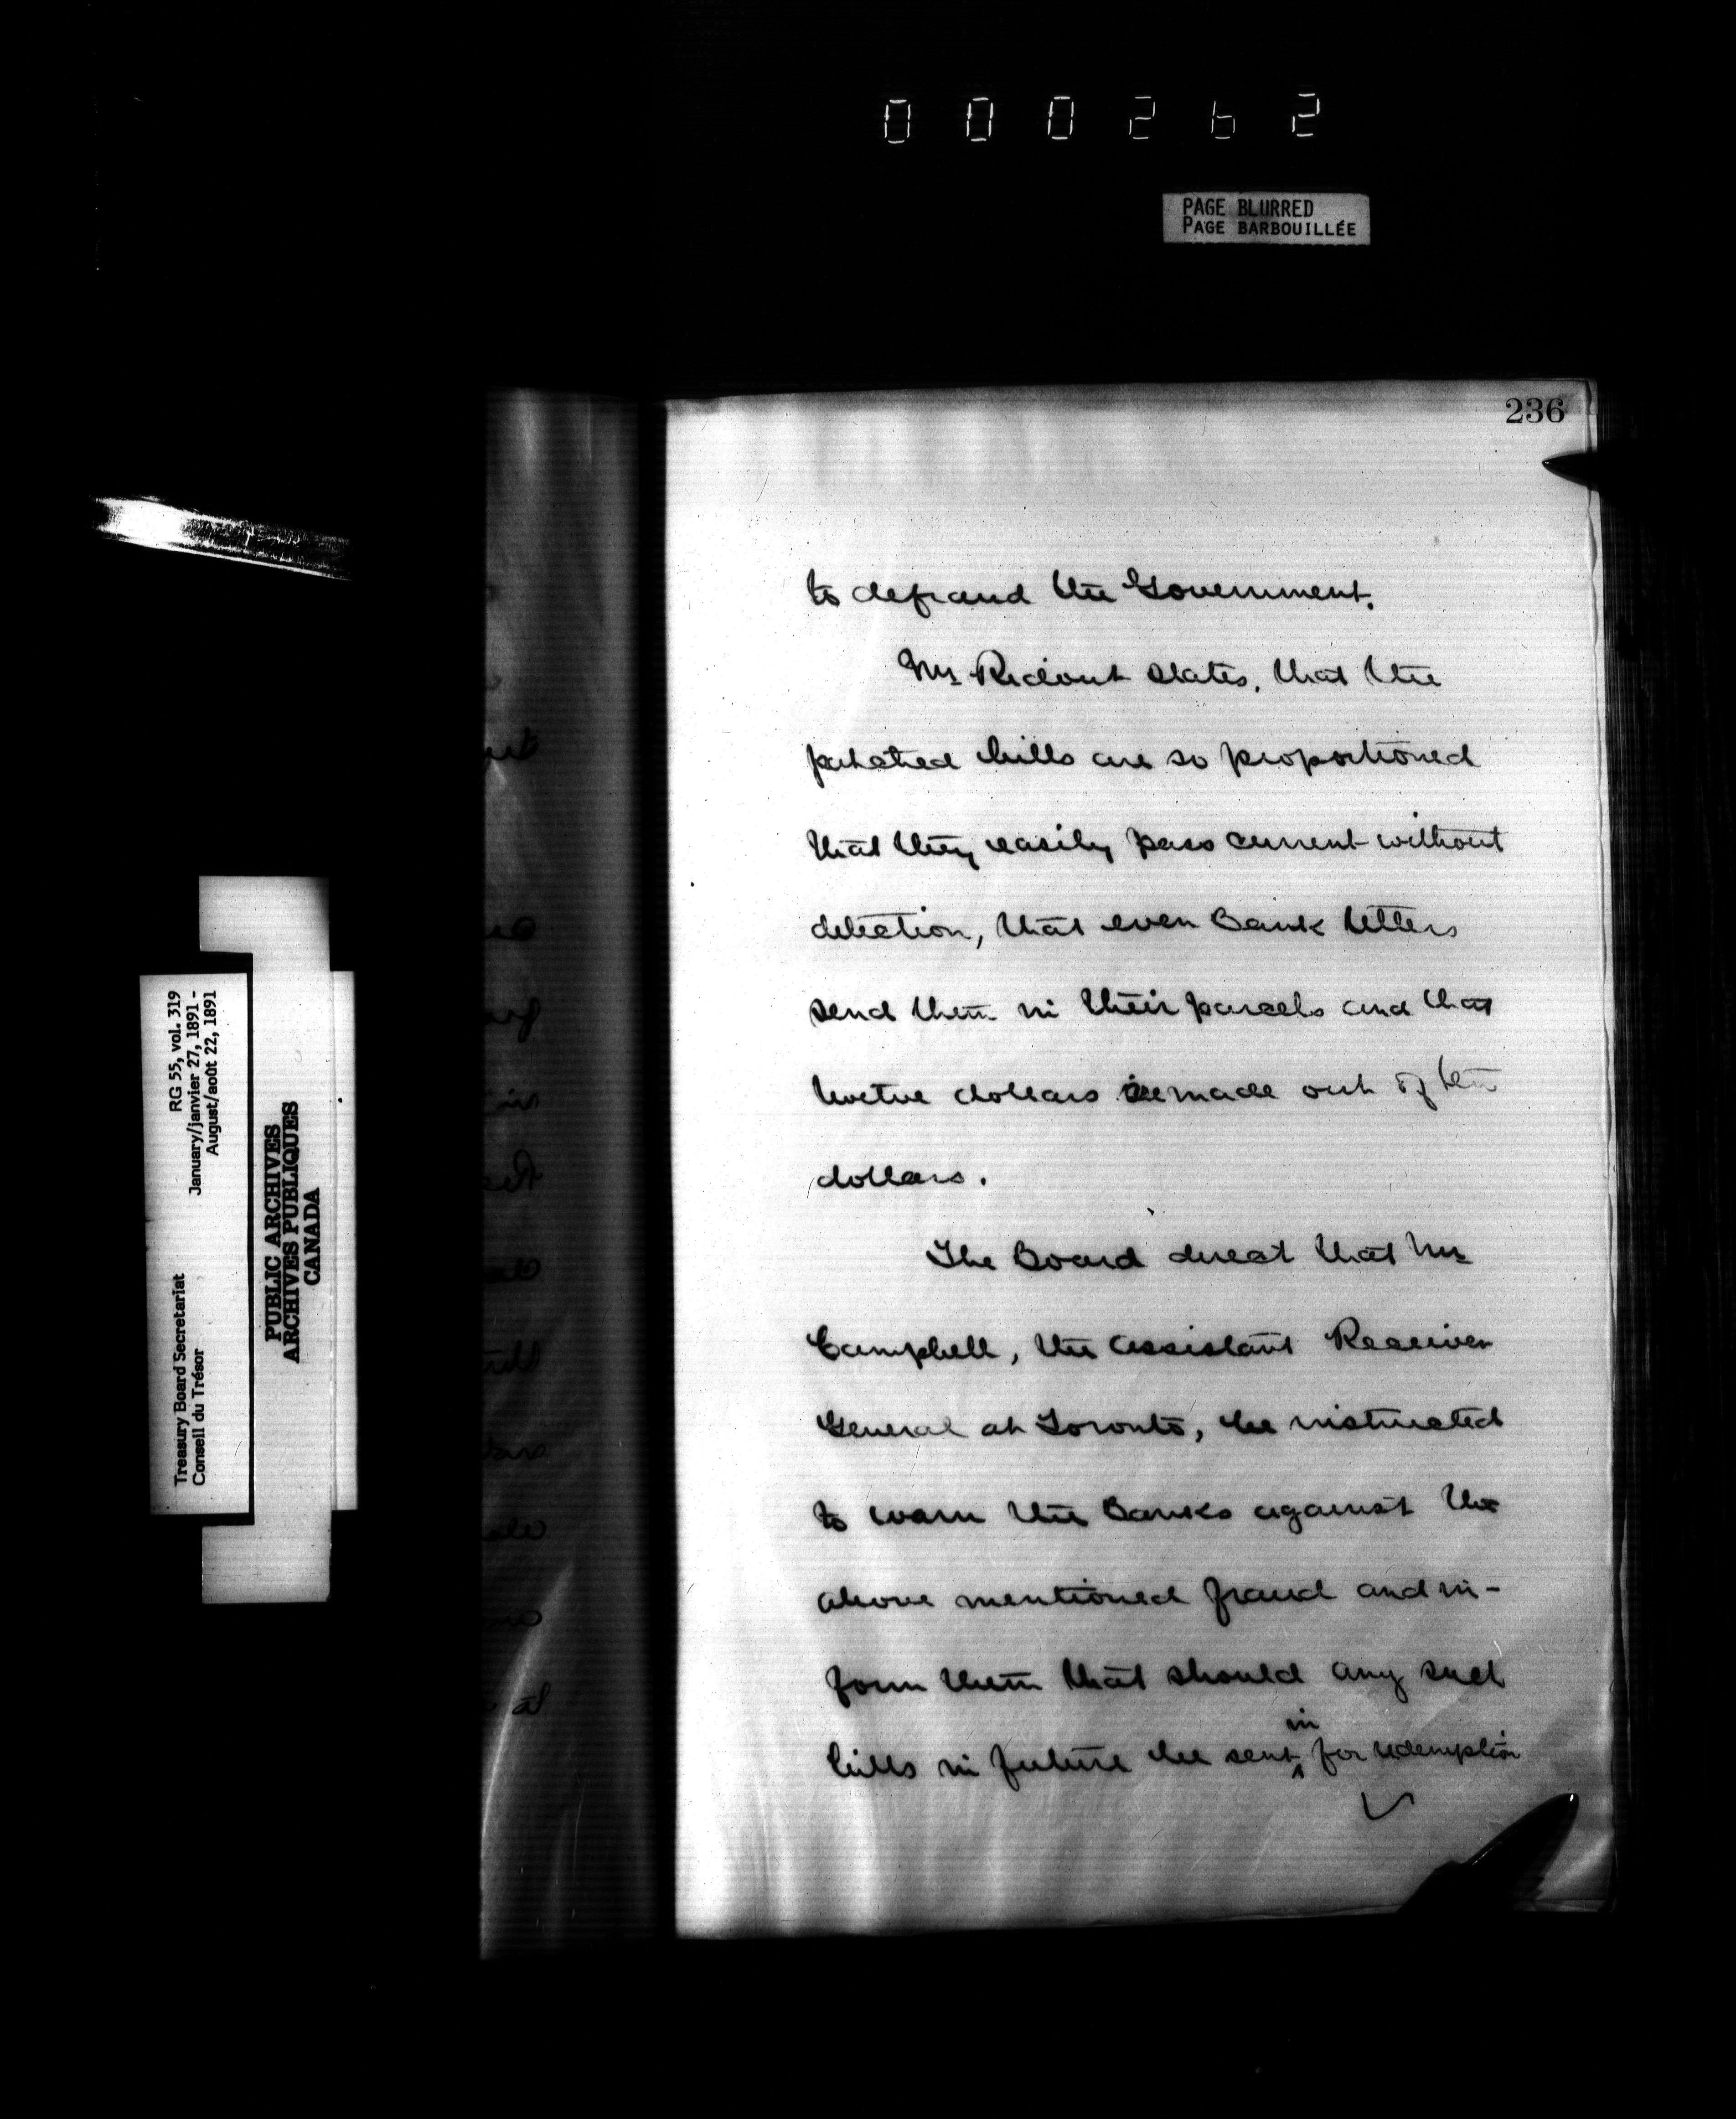 000262
PAGE BLURRED
PAGE BARBOUILLÉE
236
to defraud the Government.
Mr Ridout states, that the
patched bills are so proportioned
that they easily pass current without
detection, that even Bank tellers
send them in their parcels and that
twelve dollars made out of ten
dollars.
The Board direct that Mr
Campbell, the Assistant Receiver
General at Toronto, be instructed
to warn the Banks against the
above mentioned fraud and in-
form them that should any such
bills in future be sent in for redemption
RG 55, vol. 319
January/janvier 27, 1891 -
August/août 22, 1891
Treasury Board Secretariat
Conseil du Trésor
PUBLIC ARCHIVES
ARCHIVES PUBLIQUES
CANADA